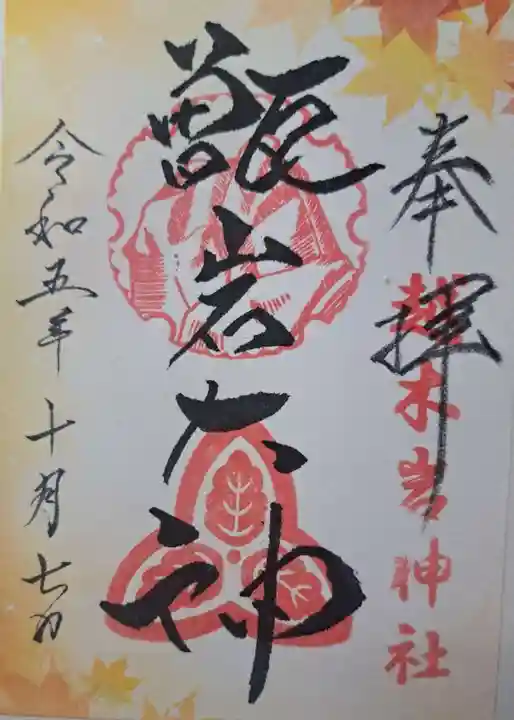 奉拝
越木岩神社
甑岩大神
令和五年十月七日